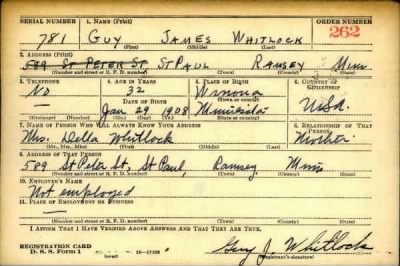 SERIAL NUMBER 1. NAME (Print) ORDER NUMBER
781 GUY JAMES WHITLOCK 262
(First) (Middle) (Last)
2. ADDRESS (Print)
589 ST PETER ST, ST PAUL RAMSEY Minn
(Number and street or R. F. D. number) (Town) (County) (State)
3. TELEPHONE 4. AGE IN YEARS 5. PLACE OF BIRTH 6. COUNTRY OF CITIZENSHIP
NO 32 Winona
DATE OF BIRTH (Town or county)
— Jan 29 1908 Minnesota USA.
(Exchange) (Number) (Mo.) (Day) (Yr.) (State or country)
7. NAME OF PERSON WHO WILL ALWAYS KNOW YOUR ADDRESS 8. RELATIONSHIP OF THAT PERSON
Mrs. Della Whitlock Mother
(Mr., Mrs., Miss) (First) (Middle) (Last)
9. ADDRESS OF THAT PERSON
589 St Peter St, St Paul, Ramsey Minn
(Number and street or R. F. D. number) (Town) (County) (State)
10. EMPLOYER'S NAME
Not employed
11. PLACE OF EMPLOYMENT OR BUSINESS
—
(Number and street or R. F. D. number) (Town) (County) (State)
I AFFIRM THAT I HAVE VERIFIED ABOVE ANSWERS AND THAT THEY ARE TRUE.
REGISTRATION CARD
D. S. S. FORM 1 Guy J. Whitlock
(Registrant's signature)